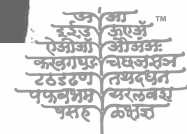 अ आ TM
इ ई उ ऊ ए ऐ
ओ औ अं अः
क ख ग घ ङ च छ ज झ ञ
ट ठ ड ढ ण त थ द ध न
प फ ब भ म य र ल व श
ष स ह ळ क्ष ज्ञ